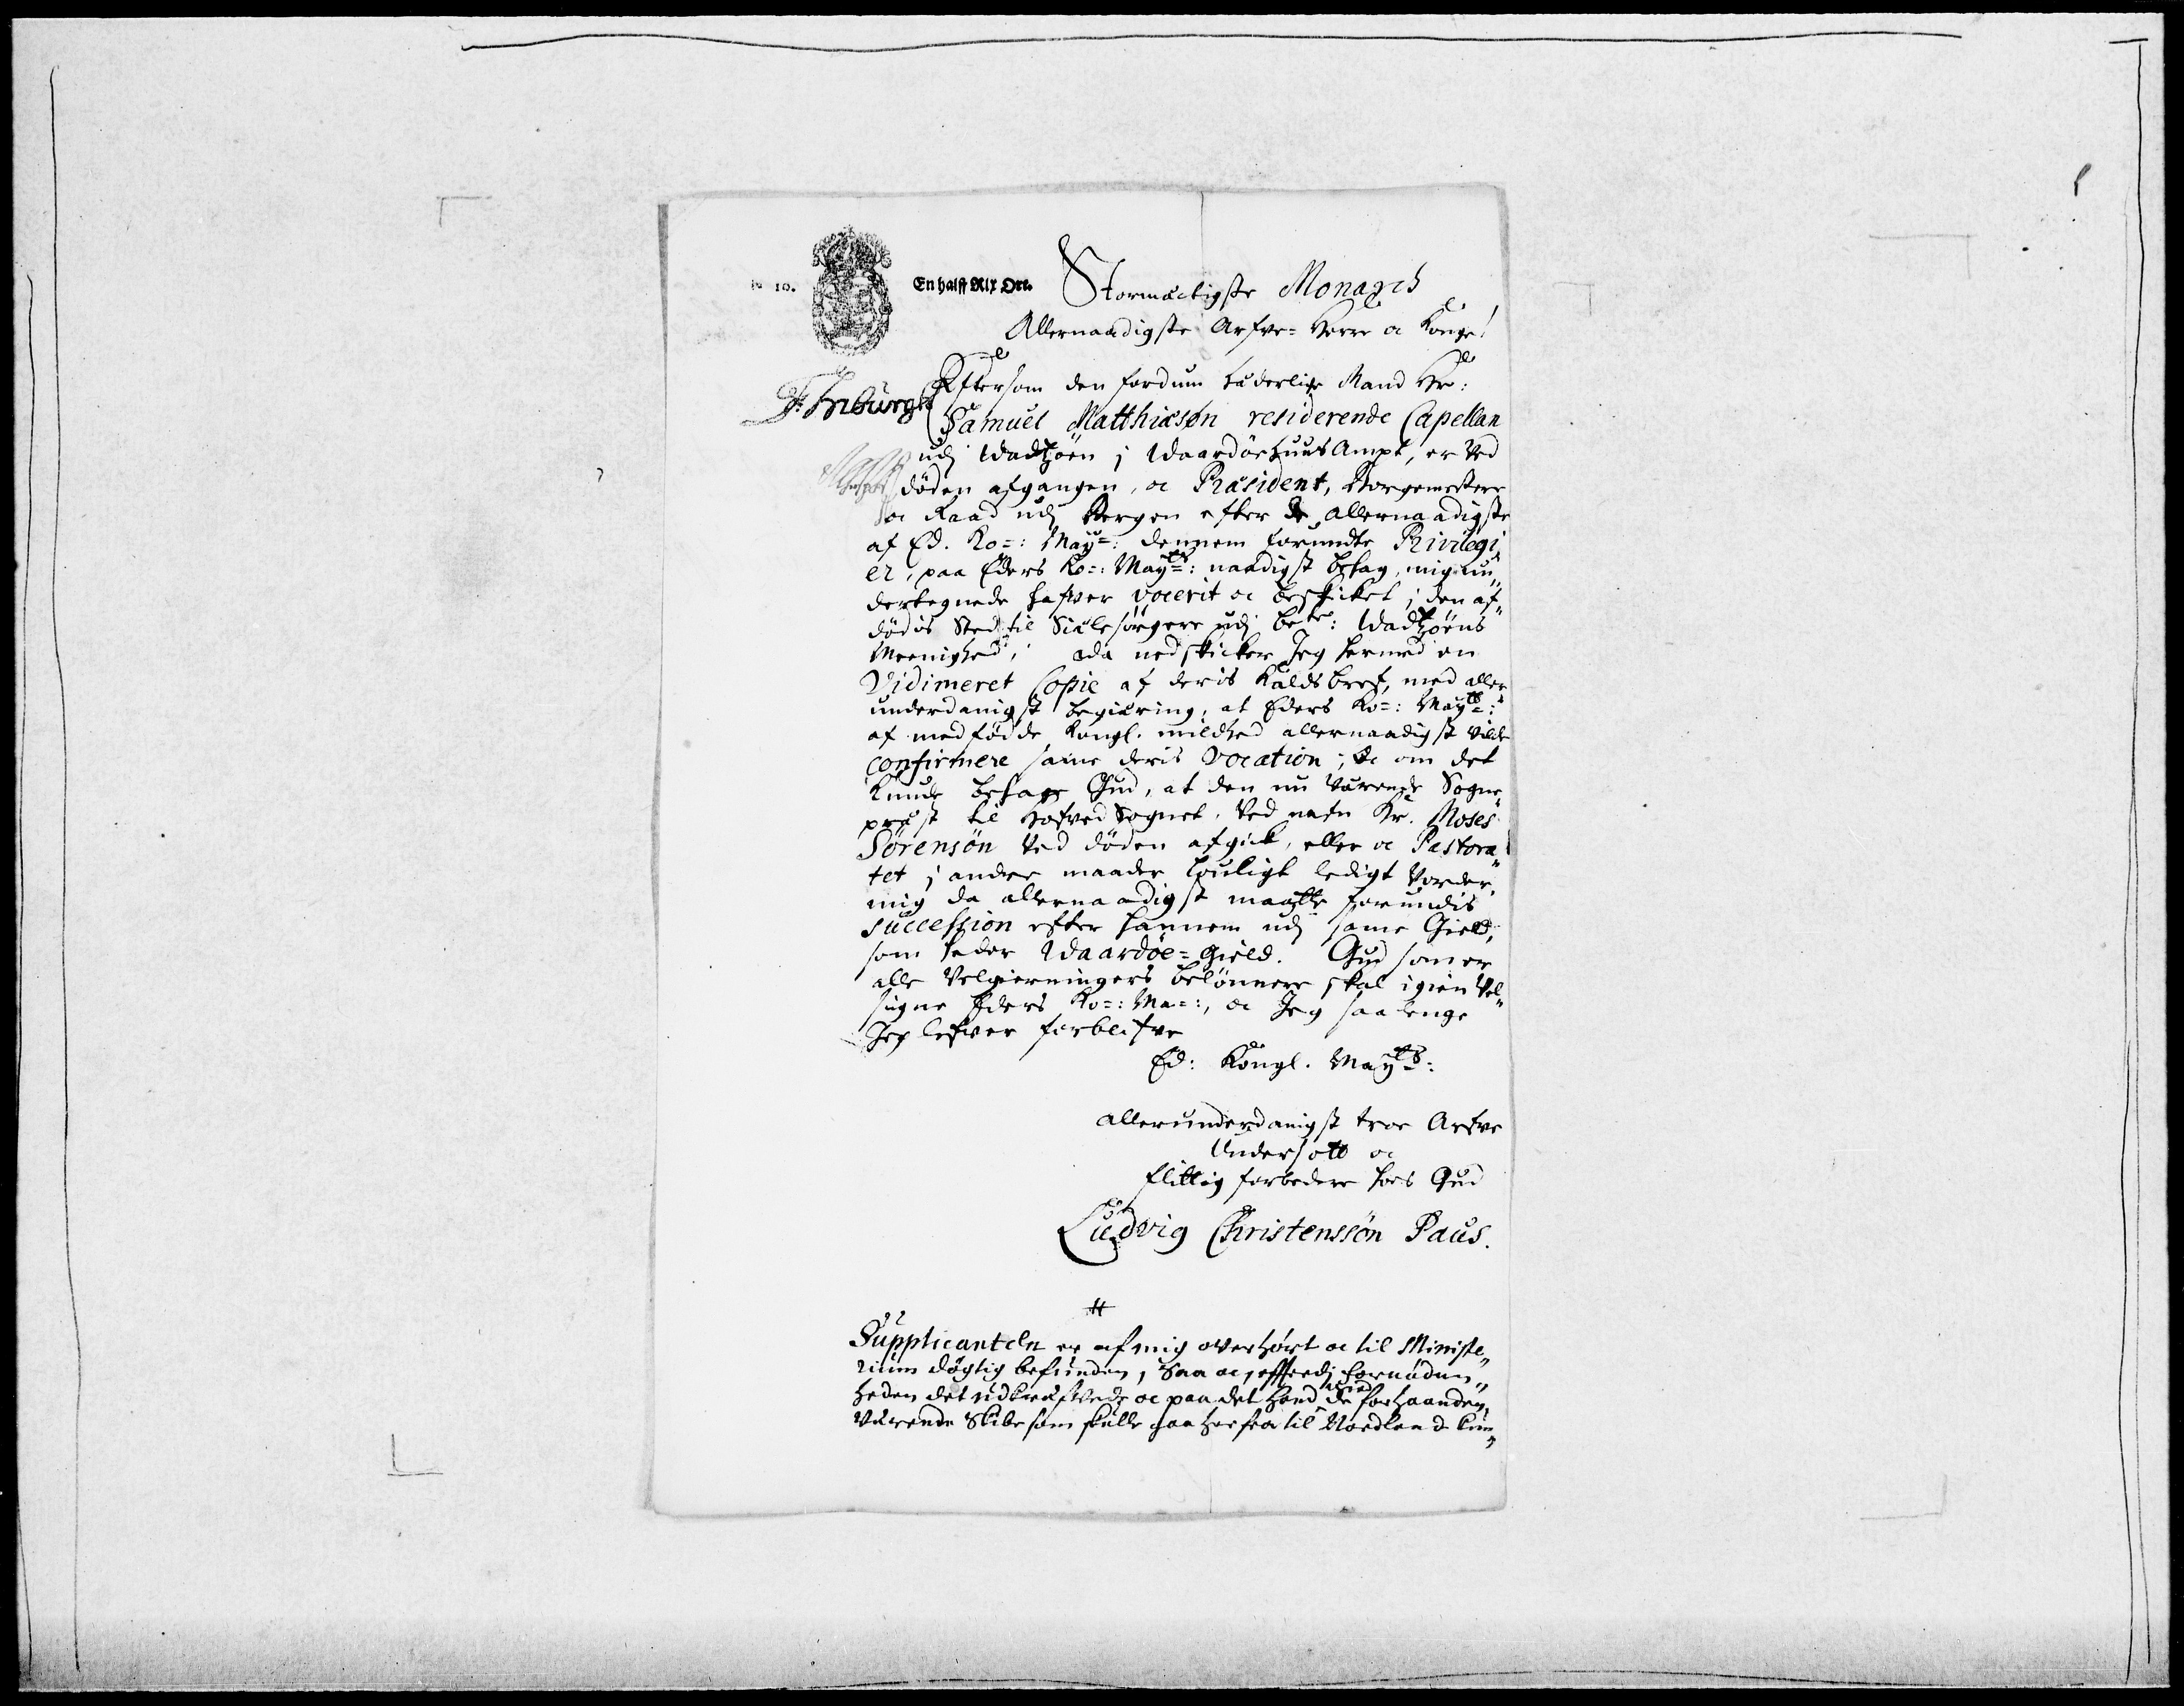 No 10. En halff Rix Ort. Stormæctigste Monarch
Allernaadigste Arfve-Herre oc Konge!
Eftersom den fordum hæderlige Mand Hr:
Samuel Matthiæsøn residerende Capellan
udj Wadtzöen j Waardöehuus Ampt, er ved
döden afgangen, oc Præsident, Borgemestere
oc Raad udj Bergen efter de allernaadigste
af Ed. Ko=: Maytt=: dennem forundte Privilegi„
er, paa Eders Ko=: Maytts=: naadigst behag, mig un„
dertegnede hafver vocerit oc beskicket j den af„
dödis Sted til Siælesörgere udj bete: Wadtzöens
Meenighed; da nedskicker Jeg hermed en
Vidimeret Copie af deris Kaldsbref, med aller„
underdanigst begiæring, at Eders Ko=: Maytts=:
af medfödde Kongl. mildhed allernaadigst vilde
confirmere same deris Vocation; Oc om det
kunde behage Gud, at den nu værende Sogne„
præst til Hofved Sognet, ved nafn Hr. Moses
Sörensön ved döden afgick, eller oc Pastora„
tet j andre maader louligt ledigt vorder,
mig da allernaadigst maatte forundis
succession efter hannem udj same Gield,
som heder Waardöe=Gield. Gud som er
alle Velgierningers belönnere skal igien Vel„
signe Eders Ko=: Ma=:, oc Jeg saa lenge
Jeg lefver forblifve
Ed: Kongl. Maytts=:
allerunderdanigst troe Arfve
Undersott oc
flittig forbedere hos Gud
Ludvig Christenssön Paus.
Supplicanteln er af mig overhört oc til Ministe„
rium dögtig befunden, Saa oc, effterdj fornöden„
heden det udkræfvede oc paa det hand med de forhaanden„
værende Skibe som skulle gaa herfra til Nordland kun„